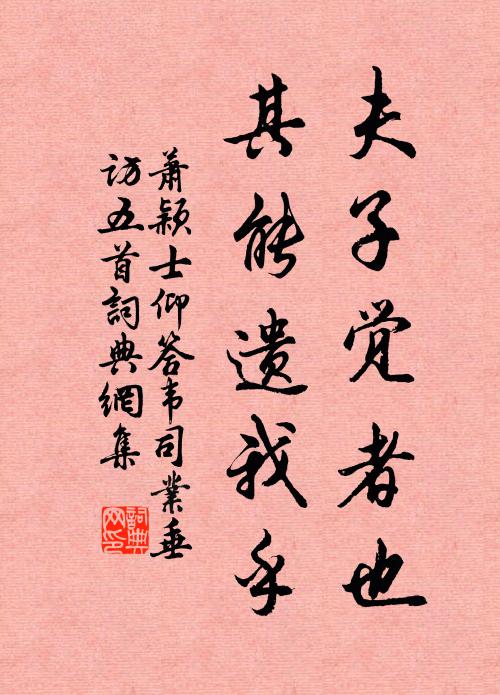 夫子觉者也
其能遗我乎
萧颖士仰答韦司业垂
访五首词典網集
詞典
网印